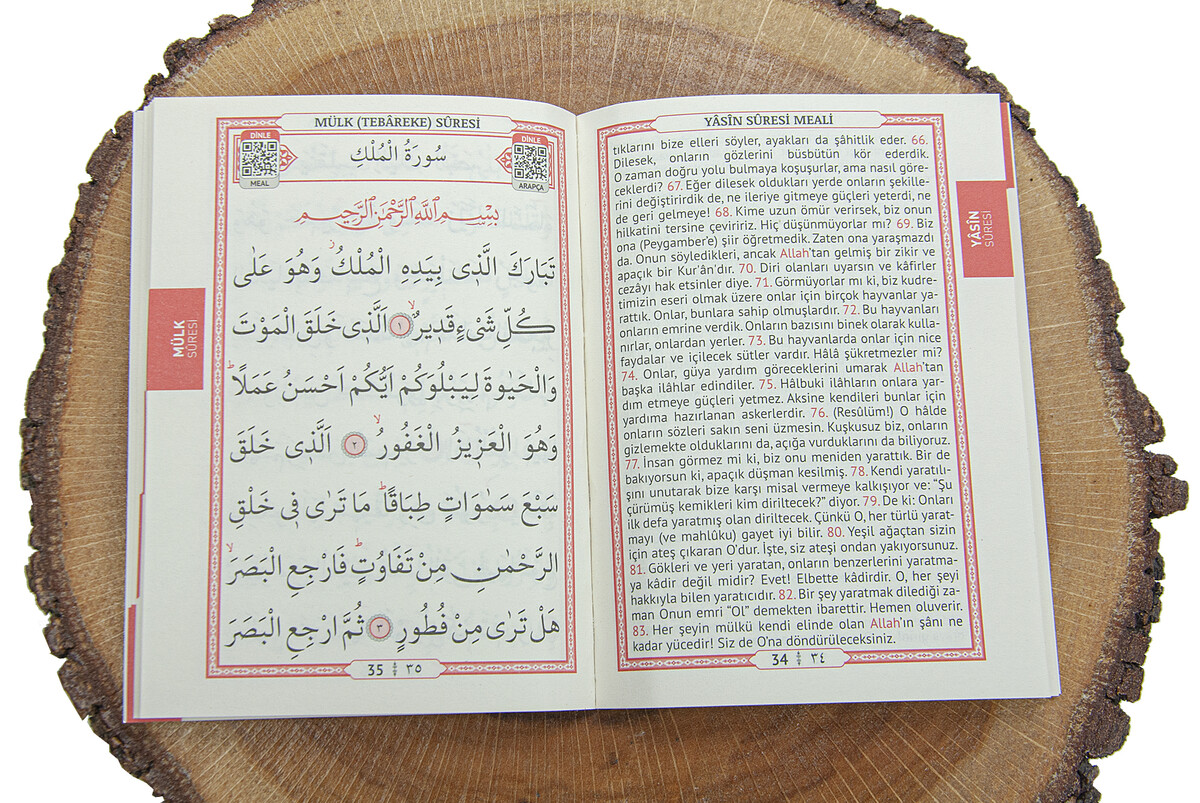 YÂSÎN SÛRESİ MEALİ
tıklarını bize elleri söyler, ayakları da şâhitlik eder. 66.
Dilesek, onların gözlerini büsbütün kör ederdik.
O zaman doğru yolu bulmaya koşuşurlar, ama nasıl göre-
ceklerdi? 67. Eğer dilesek oldukları yerde onların şekille-
rini değiştirirdik de, ne ileriye gitmeye güçleri yeterdi, ne
de geri gelmeye! 68. Kime uzun ömür verirsek, biz onun
hilkatini tersine çeviririz. Hiç düşünmüyorlar mı? 69. Biz
ona (Peygamber'e) şiir öğretmedik. Zaten ona yaraşmazdı
da. Onun söyledikleri, ancak Allah'tan gelmiş bir zikir ve
apaçık bir Kur'ân'dır. 70. Diri olanları uyarsın ve kâfirler
cezâyı hak etsinler diye. 71. Görmüyorlar mı ki, biz kudre-
timizin eseri olmak üzere onlar için birçok hayvanlar ya-
rattık. Onlar, bunlara sahip olmuşlardır. 72. Bu hayvanları
onların emrine verdik. Onların bazısını binek olarak kulla-
nırlar, onlardan yerler. 73. Bu hayvanlarda onlar için nice
faydalar ve içilecek sütler vardır. Hâlâ şükretmezler mi?
74. Onlar, güya yardım göreceklerini umarak Allah'tan
başka ilâhlar edindiler. 75. Hâlbuki ilâhların onlara yar-
dım etmeye güçleri yetmez. Aksine kendileri bunlar için
yardıma hazırlanan askerlerdir. 76. (Resûlüm!) O hâlde
onların sözleri sakın seni üzmesin. Kuşkusuz biz, onların
gizlemekte olduklarını da, açığa vurduklarını da biliyoruz.
77. İnsan görmez mi ki, biz onu meniden yarattık. Bir de
bakıyorsun ki, apaçık düşman kesilmiş. 78. Kendi yaratılı-
şını unutarak bize karşı misal vermeye kalkışıyor ve: "Şu
çürümüş kemikleri kim diriltecek?" diyor. 79. De ki: Onları
ilk defa yaratmış olan diriltecek. Çünkü O, her türlü yarat-
mayı (ve mahlûku) gayet iyi bilir. 80. Yeşil ağaçtan sizin
için ateş çıkaran O'dur. İşte, siz ateşi ondan yakıyorsunuz.
81. Gökleri ve yeri yaratan, onların benzerlerini yaratma-
ya kâdir değil midir? Evet! Elbette kâdirdir. O, her şeyi
hakkıyla bilen yaratıcıdır. 82. Bir şey yaratmak dilediği za-
man Onun emri "Ol" demekten ibarettir. Hemen oluverir.
83. Her şeyin mülkü kendi elinde olan Allah'ın şânı ne
kadar yücedir! Siz de O'na döndürüleceksiniz.
34 ٣٤
YÂSÎN
SÛRESİ
MÜLK (TEBÂREKE) SÛRESİ
DİNLE
MEAL
سُورَةُ الْمُلْكِ
DİNLE
ARAPÇA
بِسْمِ اللّٰهِ الرَّحْمٰنِ الرَّحِيمِ
تَبَارَكَ الَّذٖى بِيَدِهِ الْمُلْكُؗ وَهُوَ عَلٰى
كُلِّ شَیْءٍ قَدٖيرٌۙ ١ اَلَّذٖى خَلَقَ الْمَوْتَ
وَالْحَيٰوةَ لِيَبْلُوَكُمْ اَيُّكُمْ اَحْسَنُ عَمَلًاؕ
وَهُوَ الْعَزٖيزُ الْغَفُورُۙ ٢ اَلَّذٖى خَلَقَ
سَبْعَ سَمٰوَاتٍ طِبَاقًاؕ مَا تَرٰى فٖى خَلْقِ
الرَّحْمٰنِ مِنْ تَفَاوُتٍؕ فَارْجِعِ الْبَصَرَۙ
هَلْ تَرٰى مِنْ فُطُورٍ ٣ ثُمَّ ارْجِعِ الْبَصَرَ
35 ٣٥
MÜLK
SÛRESİ